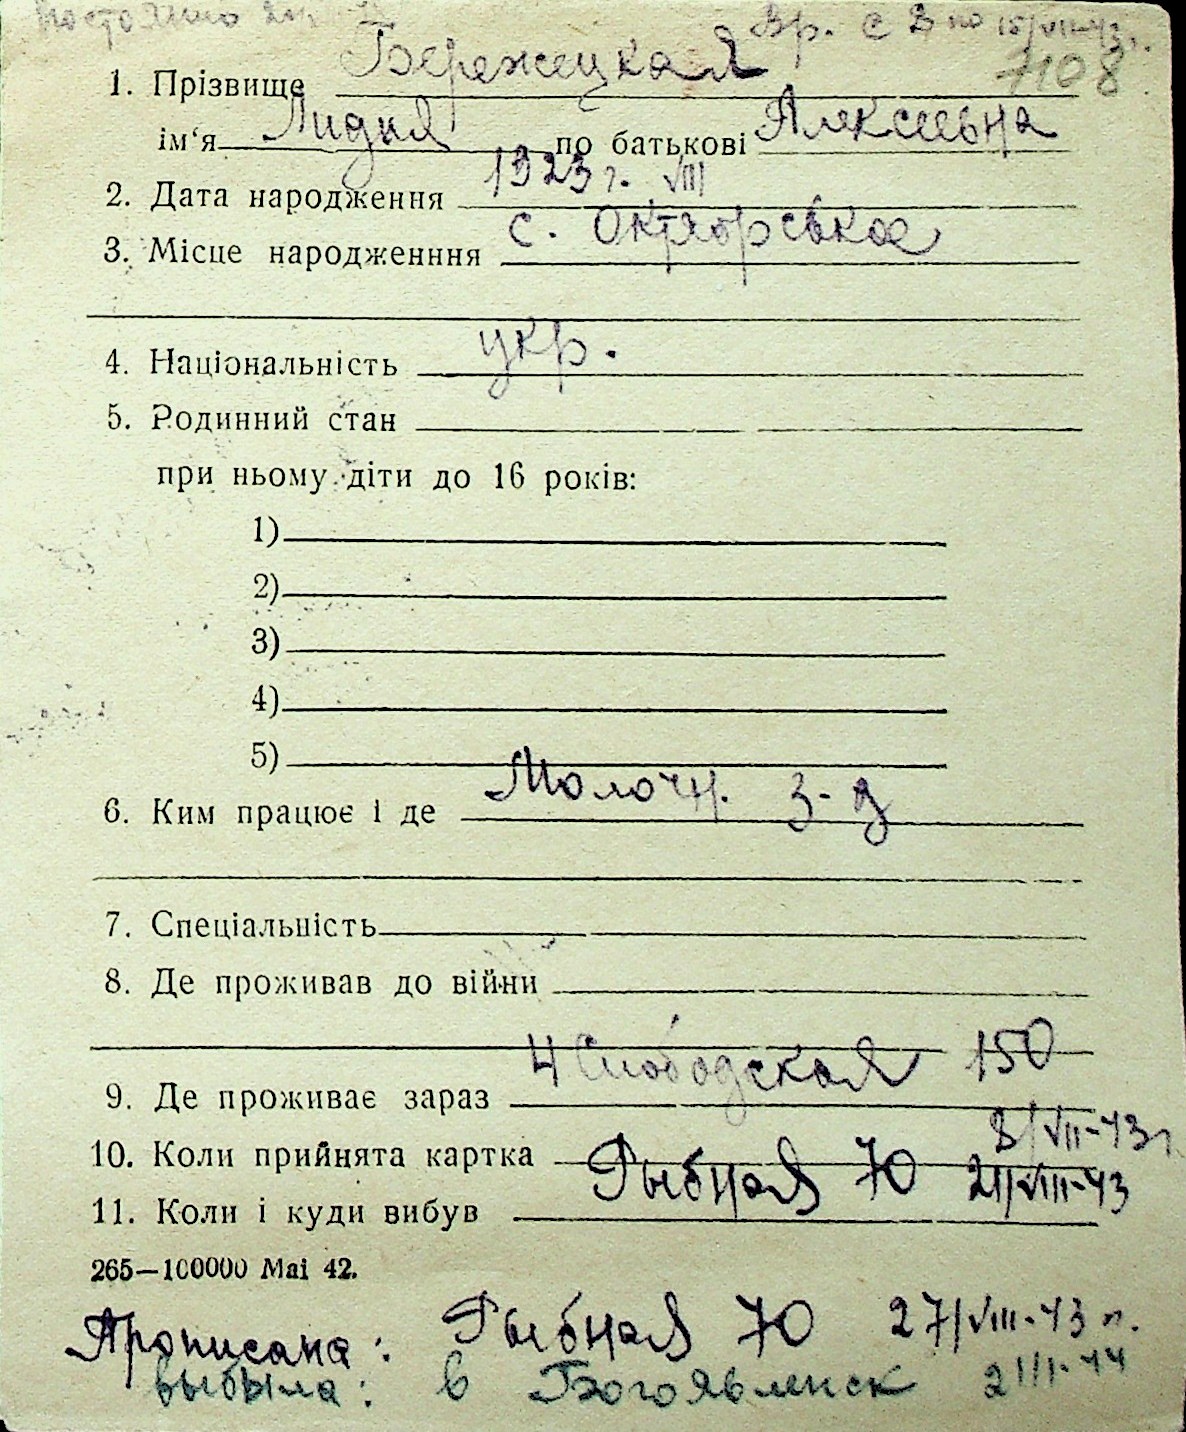 Постоянно Вр. с 3 по 15/VII-43 г.
7108
1. Прізвище Бережецкая
ім‘я Лидия по батькові Алексеевна
2. Дата народження 1923 г. VIII
3. Місце народженння с. Октябрськое
4. Національність укр.
5. Родинний стан
при ньому діти до 16 років:
1)
2)
3)
4)
5)
6. Ким працює і де Молочн. з-д
7. Спеціальність
8. Де проживав до війни
9. Де проживає зараз 4 Слободская 150
10. Коли прийнята картка 3/VII-43 г.
11. Коли і куди вибув Рыбная 70 21/VIII-43
265—100000 Mai 42.
Прописана: Рыбная 70 27/VIII-43 г.
выбыла: в Богоявленск 2/III-44